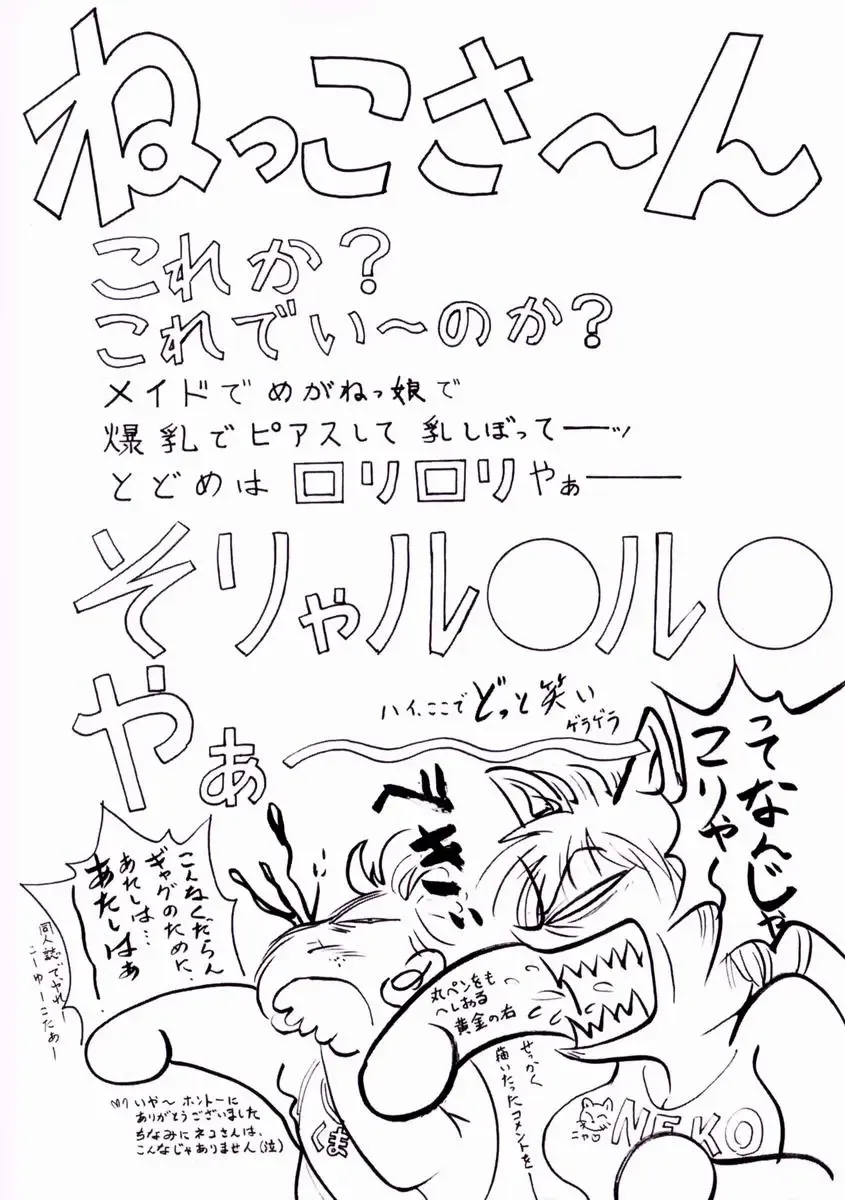 ねっこさ～ん
これか？
これでい～のか？
メイドでめがねっ娘で
爆乳でピアスして乳しぼってーッ
とどめはロリロリやぁ――
そりゃル○ル○
やぁ
ハイ、ここでどっと笑い
ゲラゲラ
ってなんじゃ
こりゃ～
べきぃ
こんなくだらん
ギャグのために、
あたしは…
あたしはぁ
同人誌でやれ
こーゆーこたあー
丸ペンをも
へしおる
黄金の右
せっかく
描いたったコメントを―
いや～ホントーに
ありがとうございました
ちなみにネコさんは、
こんなじゃありません(泣)
くま
ニャ♡
NEKO